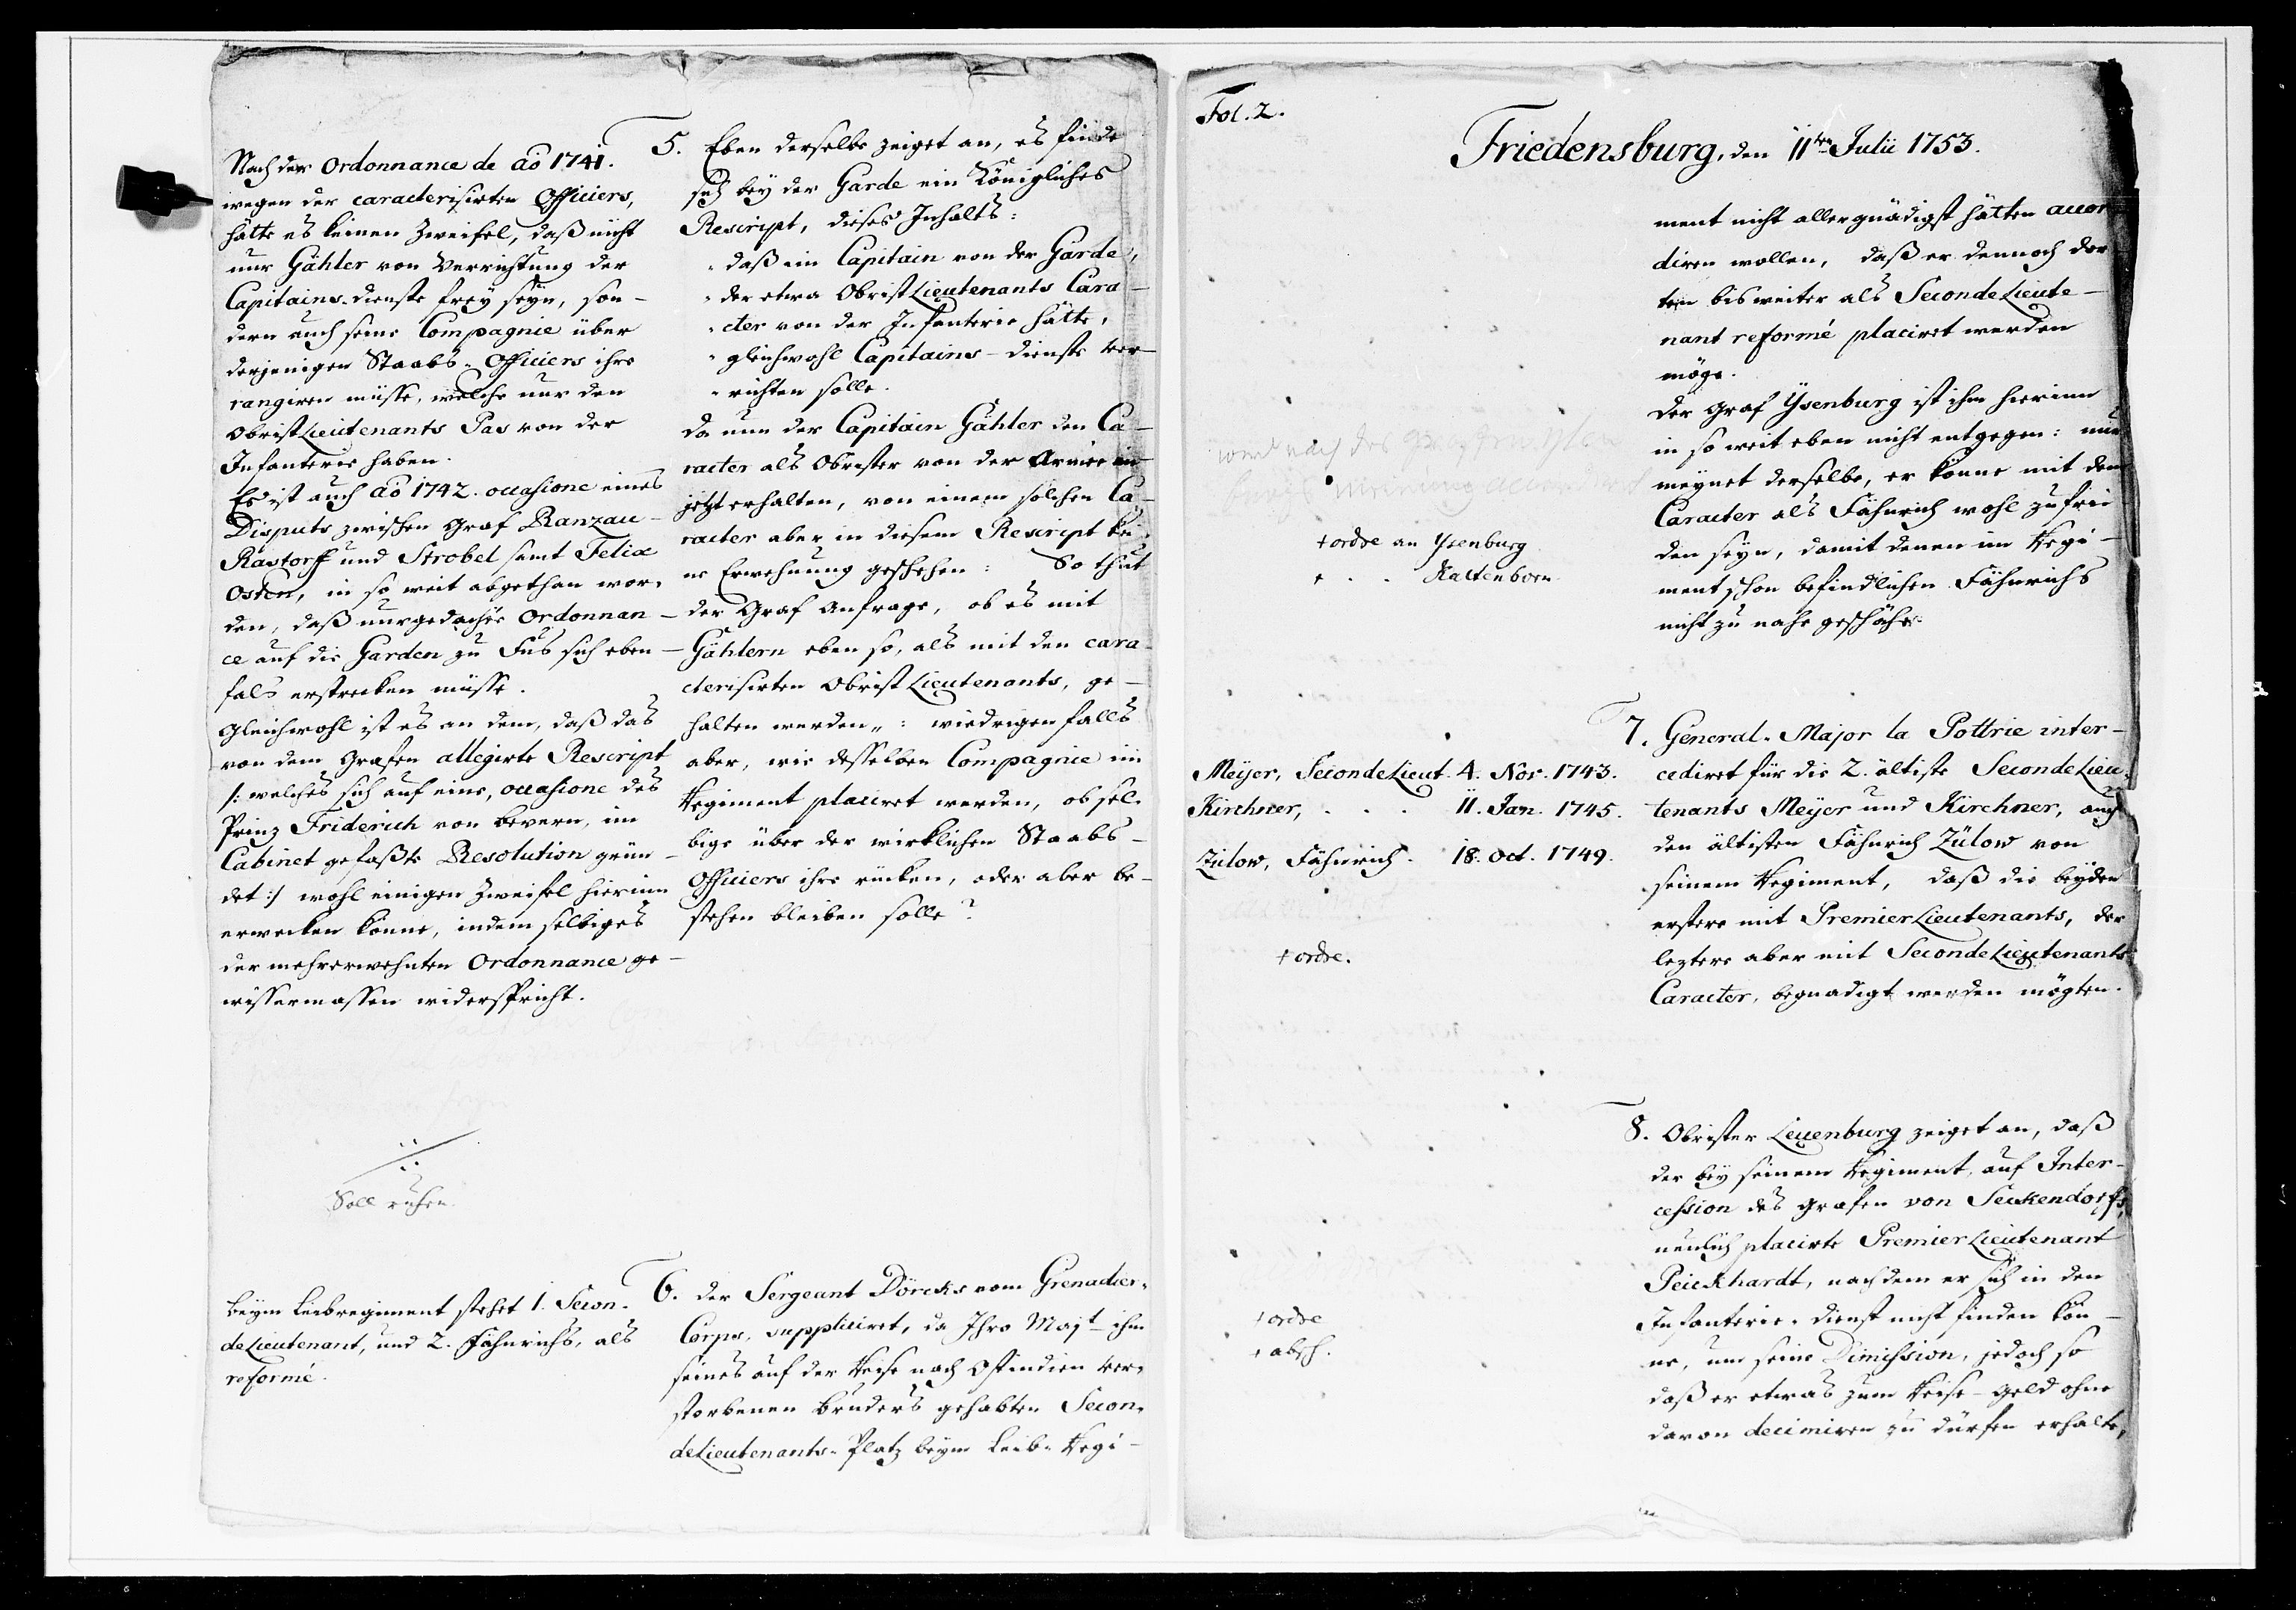 Nach der Ordonnance de ao 1741.
wegen der caracterisirten Officiers,
hätte es keinen Zweifel, daß nicht
nur Gähler von Verrichtung der
Capitains-dienste frey seyn, son-
dern auch seine Compagnie über
derjenigen Staabs-Officiers ihre
rangiren müsse, welche nur den
ObristLieutenants Pas von der
Infanterie haben.
Es ist auch ao 1742. occasione eines
Disputs zwischen Graf Ranzau-
Rastorff und Strobel samt Felix
Osten, in so weit abgethan wor-
den, daß nurgedachte Ordonnan-
ce auf die Garden zu Fus sich eben-
fals erstrecken müsse.
Gleichwohl ist es an dem, daß das
von dem Grafen allegirte Rescript
/: welches sich auf eine, occasione des
Prinz Friderich von Bevern, im
Cabinet gefaßte Resolution grün-
det :/ wohl einigen Zweifel hierinn
erwecken könne, indem selbiges
der mehrerwehnten Ordonnance ge-
wissermassen widerspricht.
Soll ruhen.
Beym Leibregiment stehet 1. Secon-
deLieutenant, und 2. Fähnrichs, als
reformé.
5. Eben derselbe zeiget an, es finde
sich bey der Garde ein Königliches
Rescript, dieses Inhalts:
"daß ein Capitain von der Garde,
"der etwa ObristLieutenants Cara-
"cter von der Infanterie hätte,
"gleichwohl Capitains-dienste ver-
"richten solle.
Da nun der Capitain Gähler den Ca-
racter als Obrister von der Armée nu
jetzt erhalten, von einem solchen Ca-
racter aber in diesem Rescript kei-
ne Erwehnung geschehen: So thut
der Graf Anfrage, ob es mit
Gählern eben so, als mit den cara-
cterisirten ObristLieutenants, ge-
halten werden,,: wiedrigen falls
aber, wie desselben Compagnie im
Regiment placiret werden, ob sel-
bige über der wirklichen Staabs-
Officiers ihre rücken, oder aber be-
stehen bleiben solle?
6. der Sergeant Dörcks vom Grenadier-
Corps, suppliciret, da Ihro Majt ihm
seines auf der Reise nach Ostindien ver-
storbenen Bruders gehabten Secon-
deLieutenants-Platz beym Leib-Regi-
Fol. 2.
Friedensburg, den 11ten Julii 1753.
ment nicht allergnädigst hätten accor-
diren wollen, daß er dennoch dor
ten bis weiter als SecondeLieute-
nant reformé placiret werden
möge.
Der Graf Ysenburg ist ihm hierinn
in so weit eben nicht entgegen: nur
meynet derselbe, er könne mit dem
Caracter als Fähnrich wohl zufrie
den seyn, damit denen im Regi-
ment schon befindlichen Fähnrichs
nicht zu nahe geschähe.
+ ordre an Ysenburg
+ . . Kaltenborn
7. General-Major la Pottrie inter-
cediret für die 2. ältiste SecondeLieu-
tenants Meyer und Kirchner, auch
den ältisten Fähnrich Zülow von
seinem Regiment, daß die beyden
erstere mit PremierLieutenants, der
leztere aber mit SecondeLieutenants
Caracter, begnadigt werden mögten.
Meyer, SecondeLieut. 4. Nov. 1743.
Kirchner, . . . 11. Jan. 1745.
Zülow, Fähnrich. 18. Oct. 1749.
+ ordre.
8. Obrister Leuenburg zeiget an, daß
der bey seinem Regiment, auf Inter-
cession des Grafen von Seckendorfs,
neulich placirte PremierLieutenant
Peuckhardt, nachdem er sich in den
Infanterie-dienst nicht finden kön-
ne, um seine Dimission, jedoch so
daß er etwas zum Reise-geld ohne
davon decimiren zu dürfen erhalte,
+ ordre
+ absch.